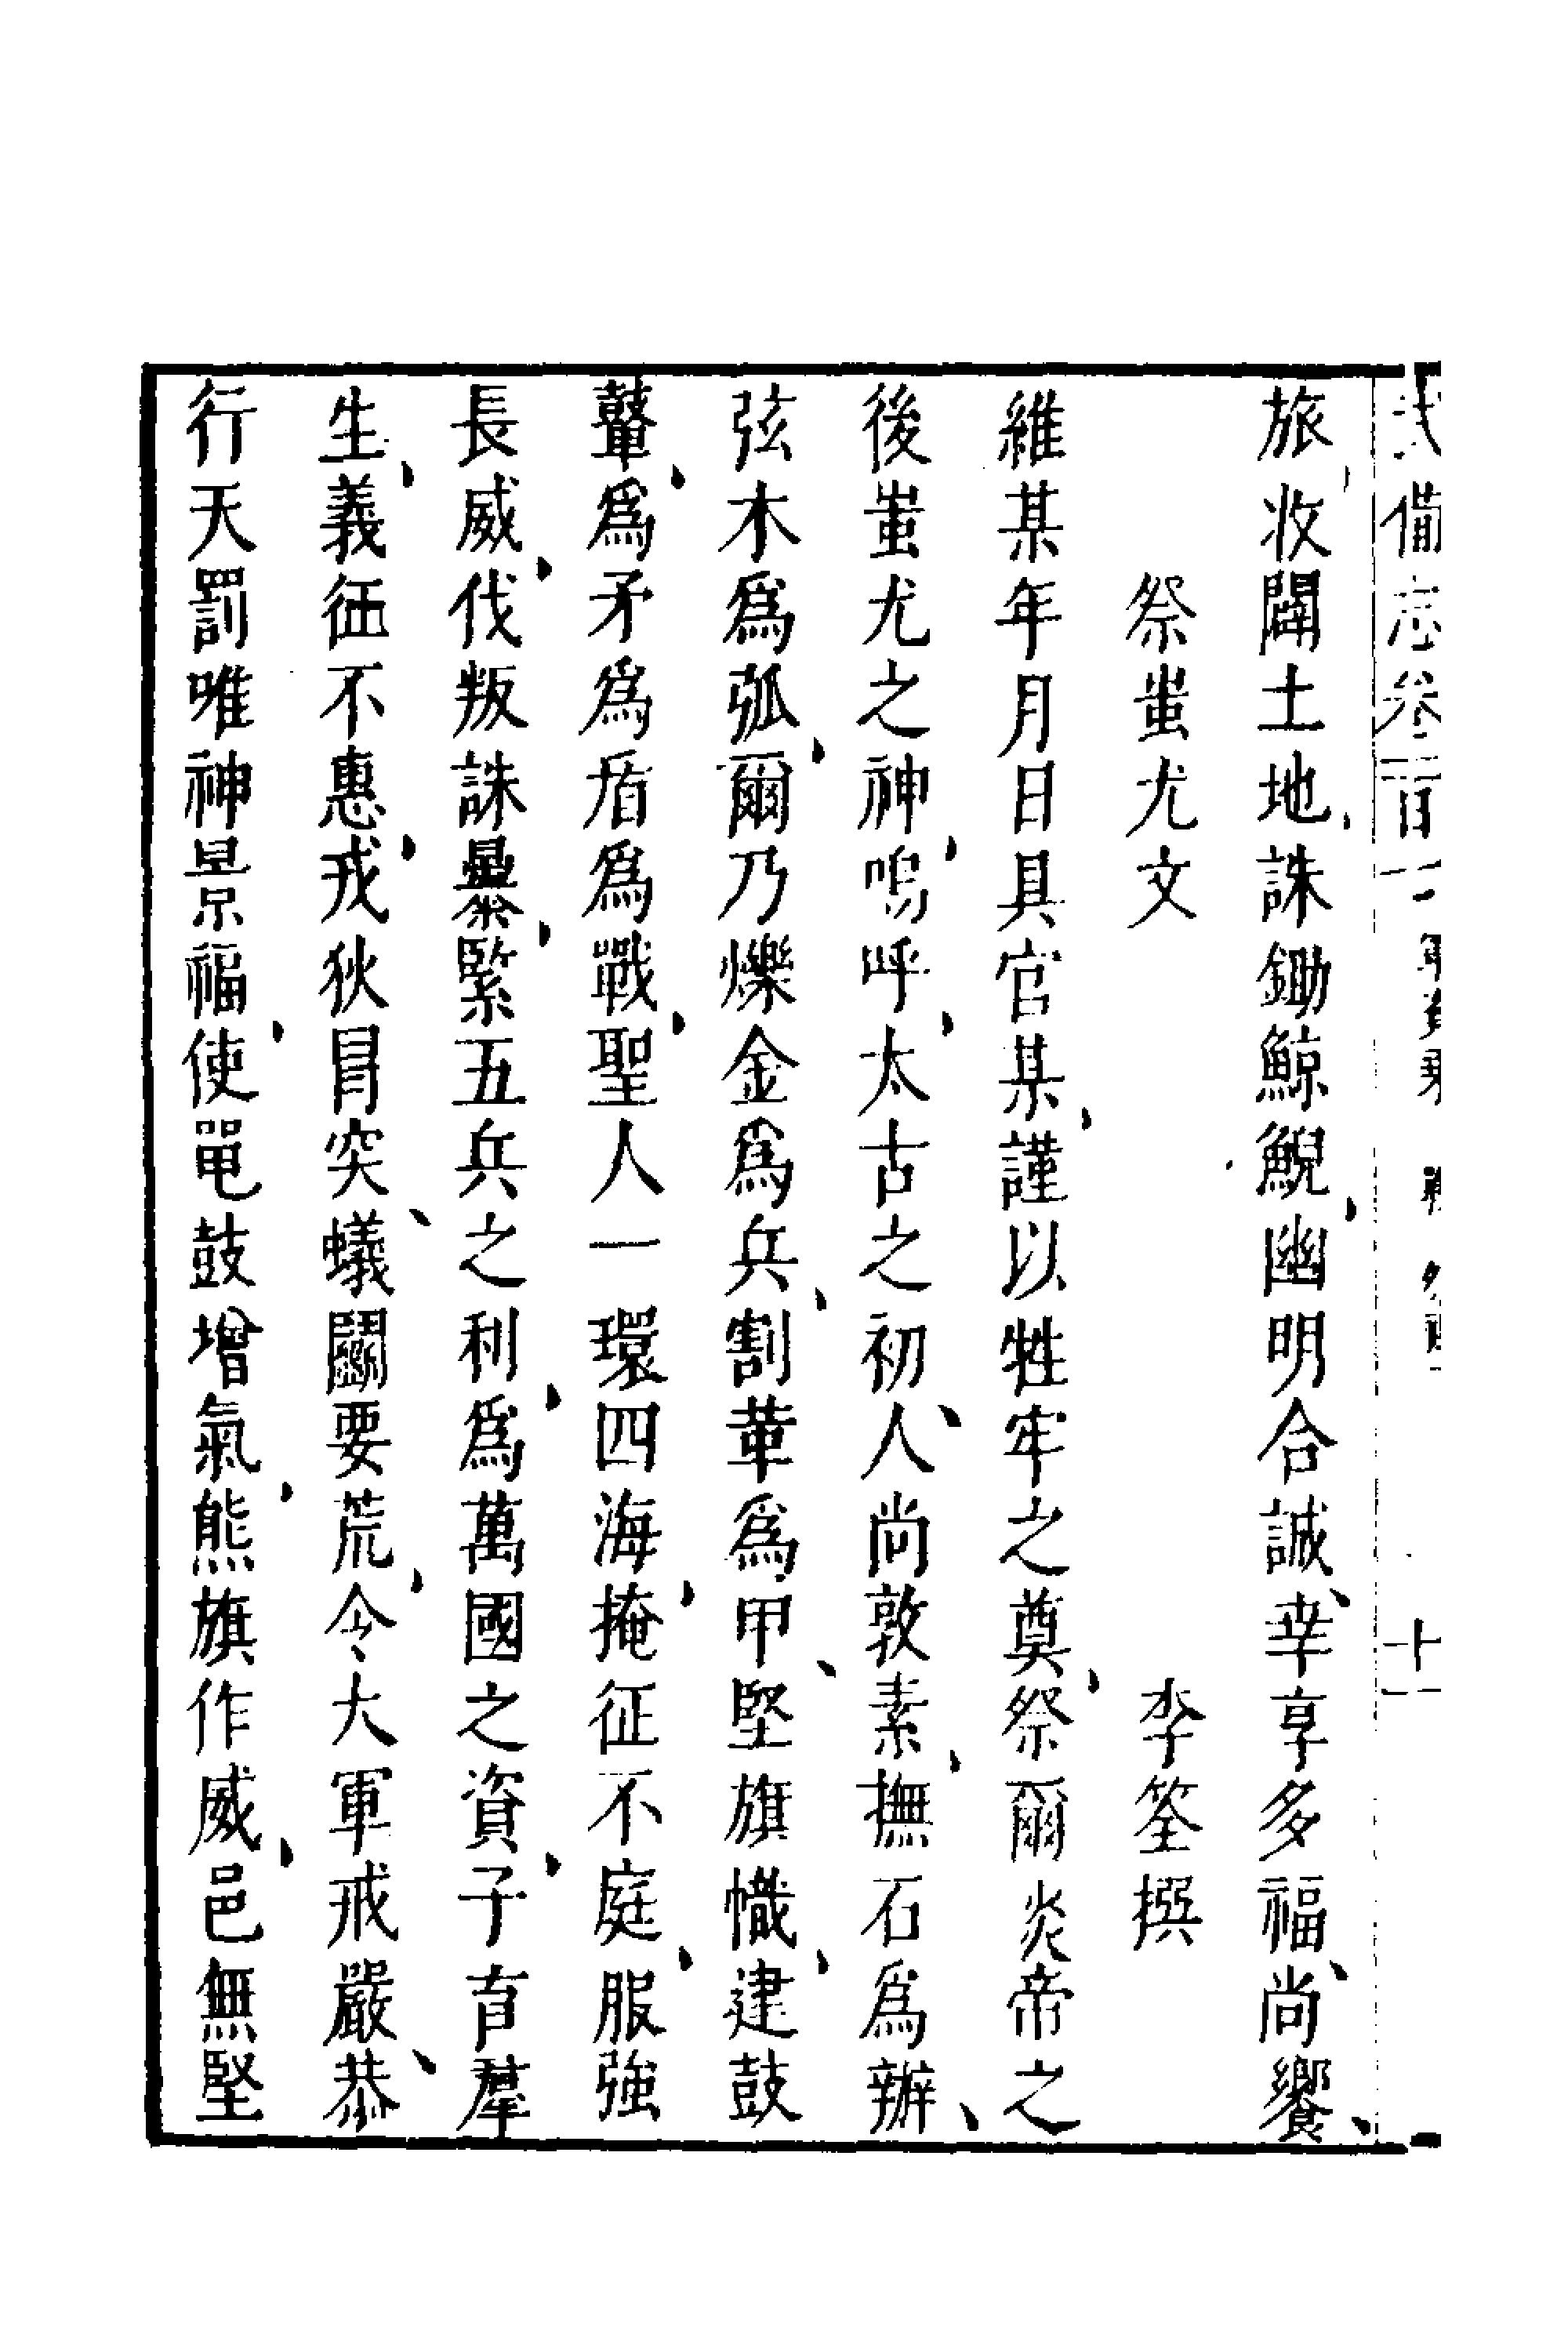 武備志卷
旅收闢土地誅鋤鯨鯢幽明合誠幸享多福尚饗
祭蚩尤文　李筌撰
維某年月日具官某謹以牲牢之奠祭爾炎帝之
後蚩尤之神嗚呼太古之初人尚敦素撫石爲辦
弦木爲弧爾乃爍金爲兵割革爲甲堅旗幟建鼓
鼙爲矛爲盾爲戰聖人一環四海掩征不庭服強
長威伐叛誅暴緊五兵之利爲萬國之資子育羣
生義征不惠戎狄冒突蟻鬭要荒今大軍戒嚴恭
行天罰唯神景福使黽鼓增氣熊旗作威邑無堅